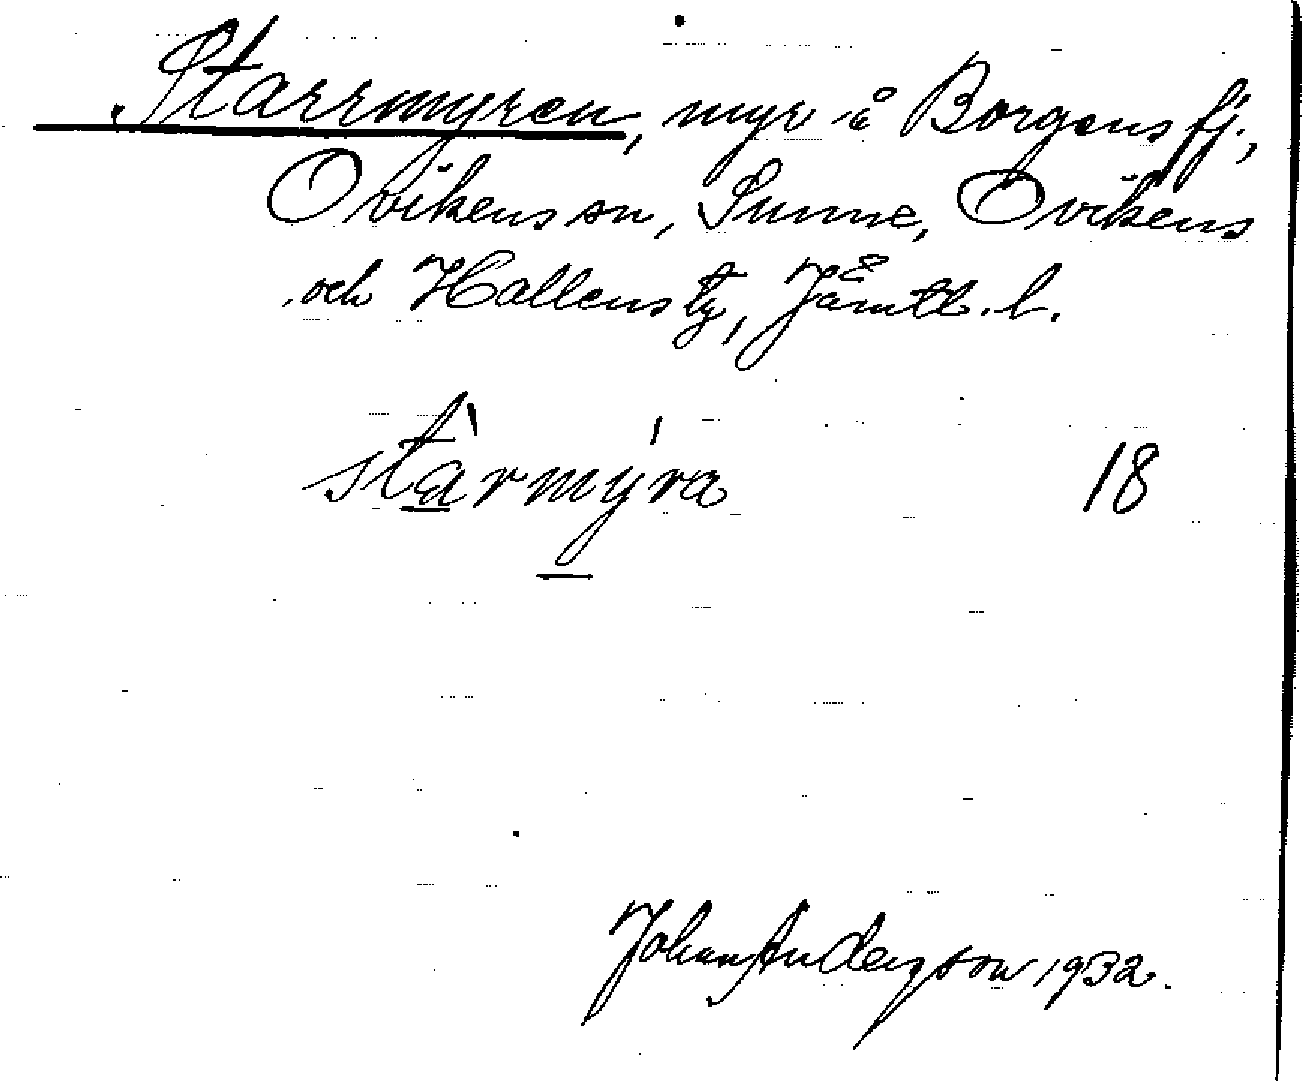 Starrmyren, myr å Borgens fj.,
Ovikens sn, Sunne, Ovikens
och Hallens tg, Jämtl. l.
stàrmýra 18
Johan Anderzson 1932.